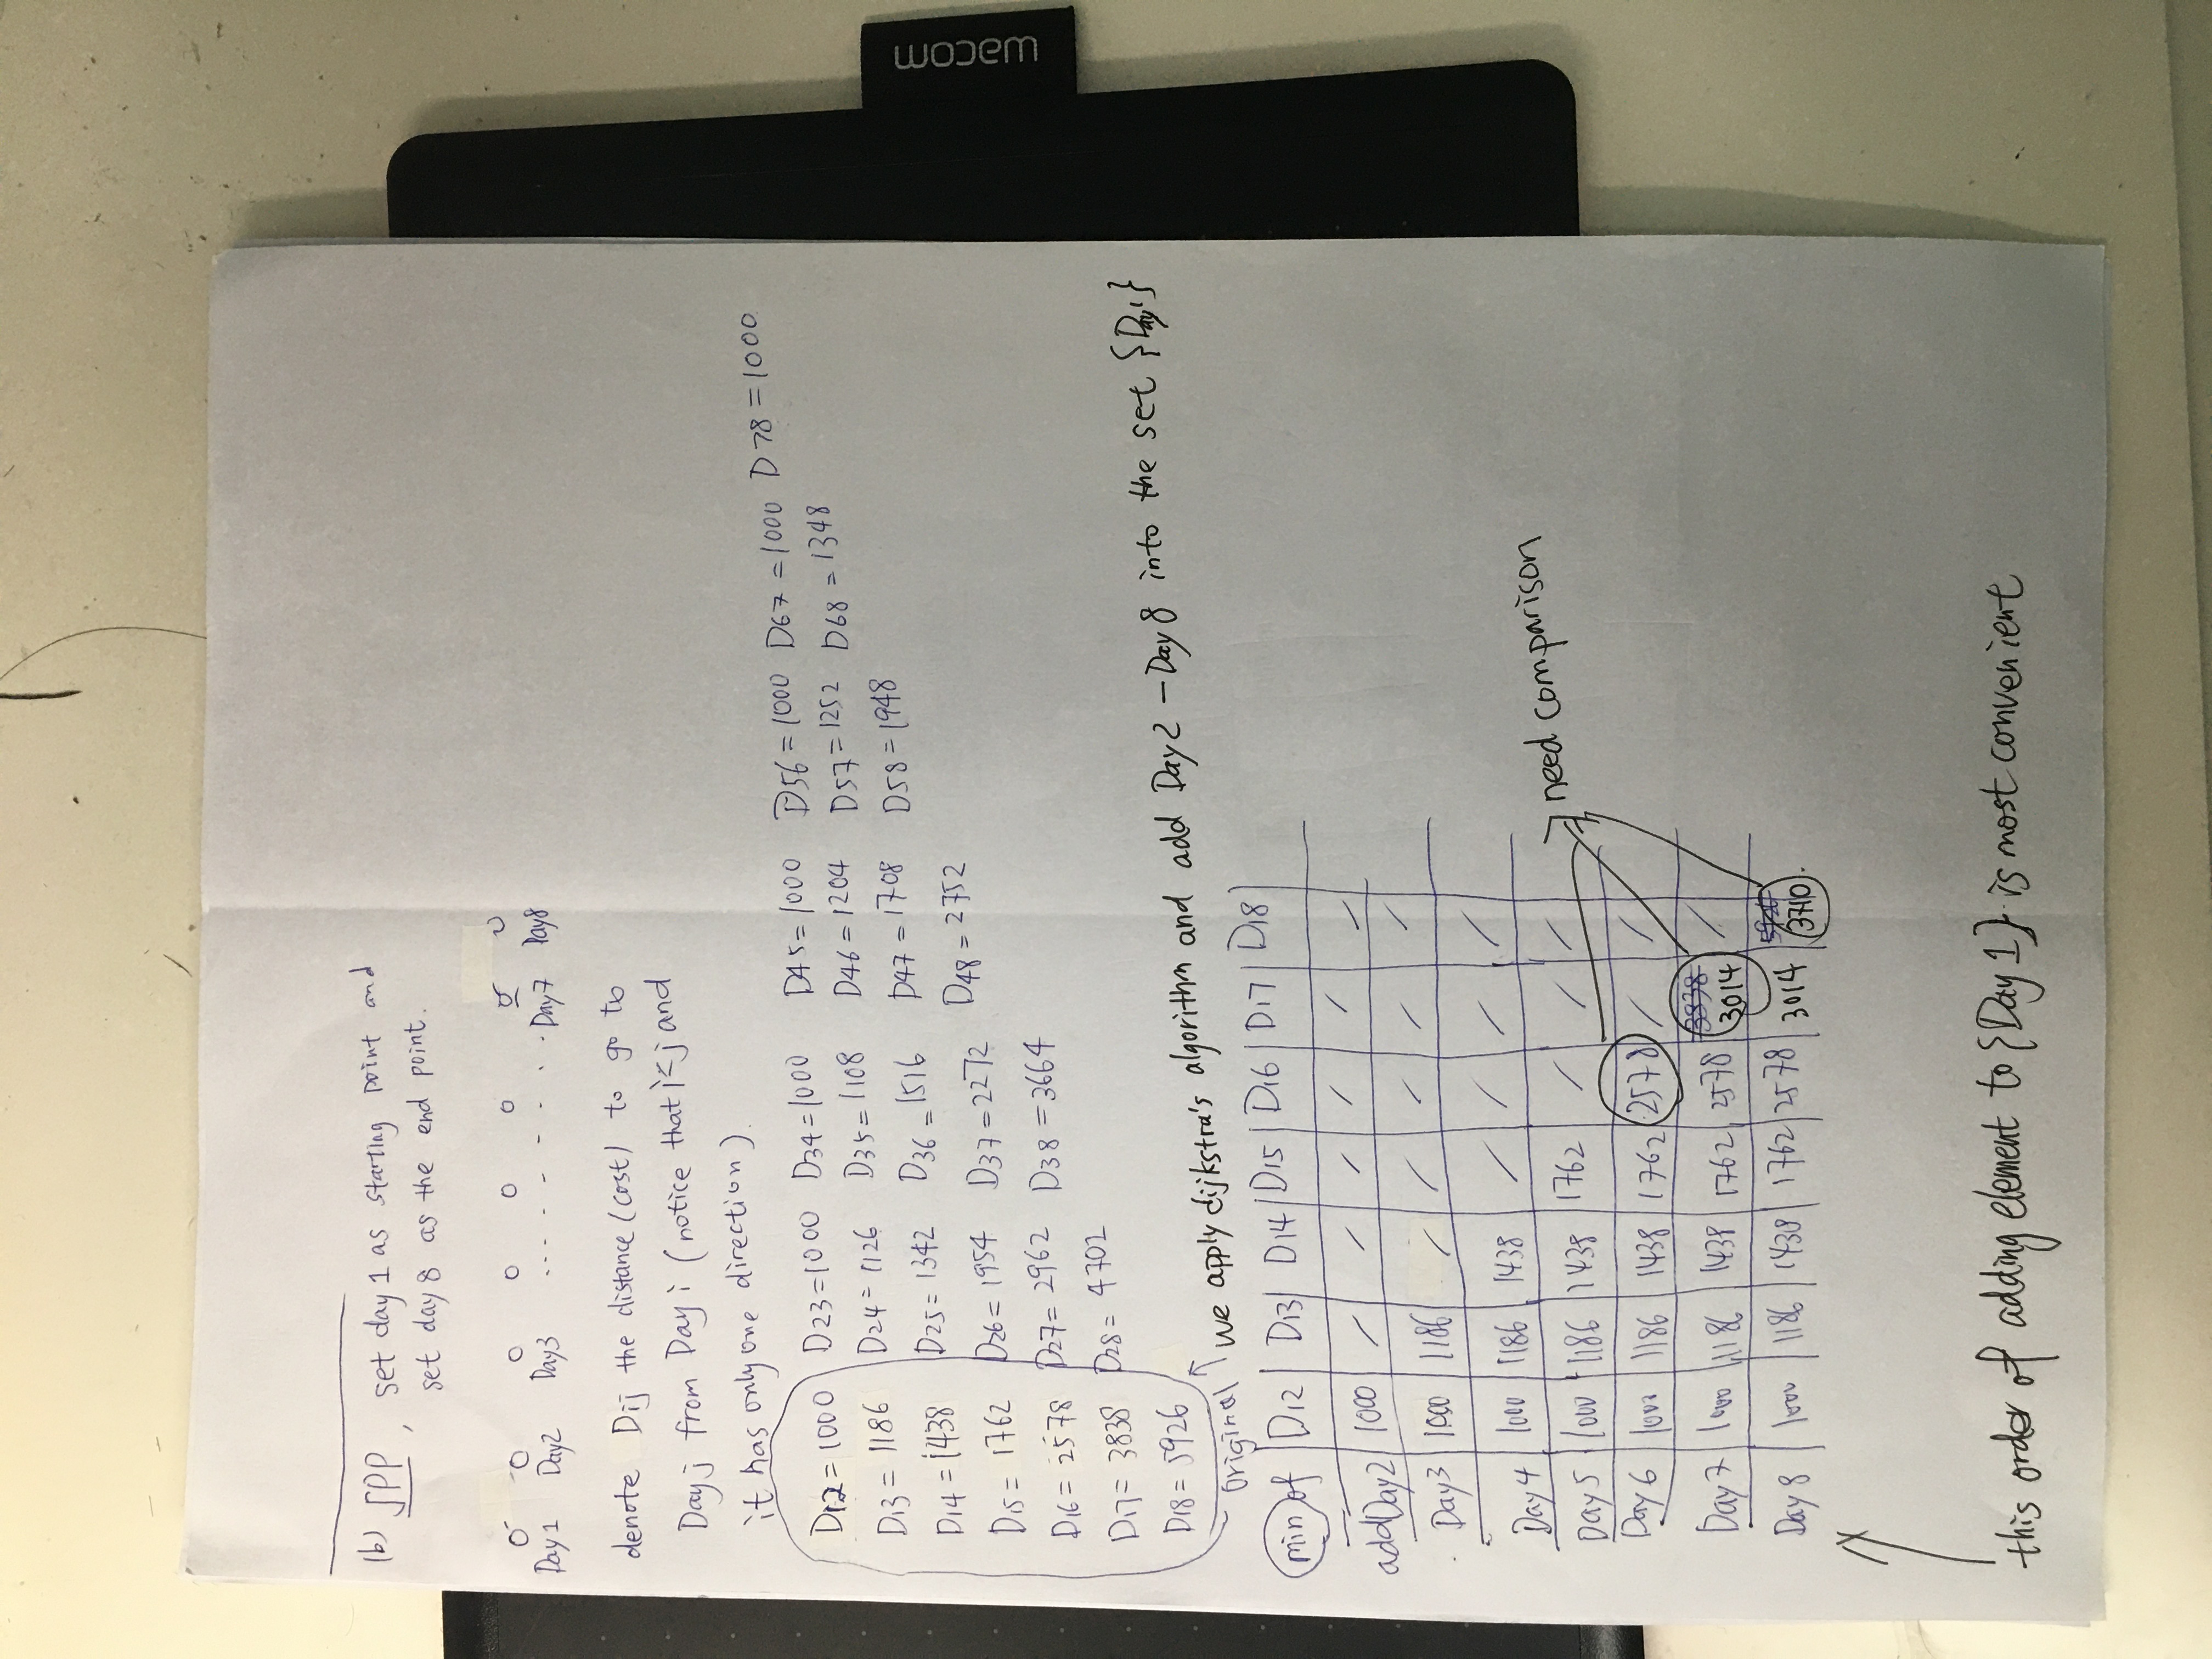 (b) SPP, set day 1 as starting point and
set day 8 as the end point.
Day1 Day2 Day3 ..... Day7 Day8
denote Dij the distance (cost) to go to
Day j from Day i (notice that i<j and
it has only one direction).
D12=1000 D23=1000 D34=1000 D45=1000 D56=1000 D67=1000 D78=1000
D13=1186 D24=1126 D35=1108 D46=1204 D57=1252 D68=1348
D14=1438 D25=1342 D36=1516 D47=1708 D58=1948
D15=1762 D26=1954 D37=2272 D48=2752
D16=2578 D27=2962 D38=3664
D17=3838 D28=4702
D18=5926
original
we apply dijkstra's algorithm and add Day2 - Day8 into the set {Day1}
min of | D12 | D13 | D14 | D15 | D16 | D17 | D18
add Day2 | 1000 | / | / | / | / | / | /
Day3 | 1000 | 1186 | / | / | / | / | /
Day4 | 1000 | 1186 | 1438 | / | / | / | /
Day5 | 1000 | 1186 | 1438 | 1762 | / | / | /
Day6 | 1000 | 1186 | 1438 | 1762 | 2578 | / | /
Day7 | 1000 | 1186 | 1438 | 1762 | 2578 | 3014 | /
Day8 | 1000 | 1186 | 1438 | 1762 | 2578 | 3014 | 3710.
need comparison
this order of adding element to {Day 1} is most convenient
wacom